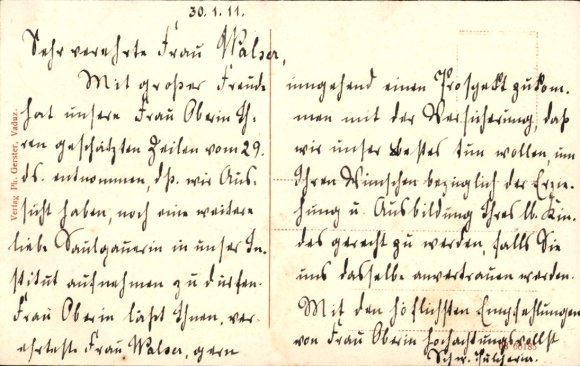 30.1.11.
Sehr verehrte Frau Walser,
Mit großer Freude
hat unsere Frau Oberin Ih-
ren geschätzten Zeilen vom 29.
ds. entnommen, dß. wir Aus-
sicht haben, noch eine weitere
liebe Saulgauerin in unser In-
stitut aufnehmen zu dürfen.
Frau Oberin läßt Ihnen, ver-
ehrteste Frau Walser, gern
umgehend einen Prospekt zukom-
men mit der Versicherung, daß
wir unser bestes tun wollen, um
Ihren Wünschen bezüglich der Erzie-
hung u. Ausbildung Ihres lb. Kin-
des gerecht zu werden, falls Sie
uns dasselbe anvertrauen werden.
Mit den höflichsten Empfehlungen
von Frau Oberin hochachtungsvollst
Schw. Pulcheria.
Verlag Ph. Gerster, Vaduz.
60185